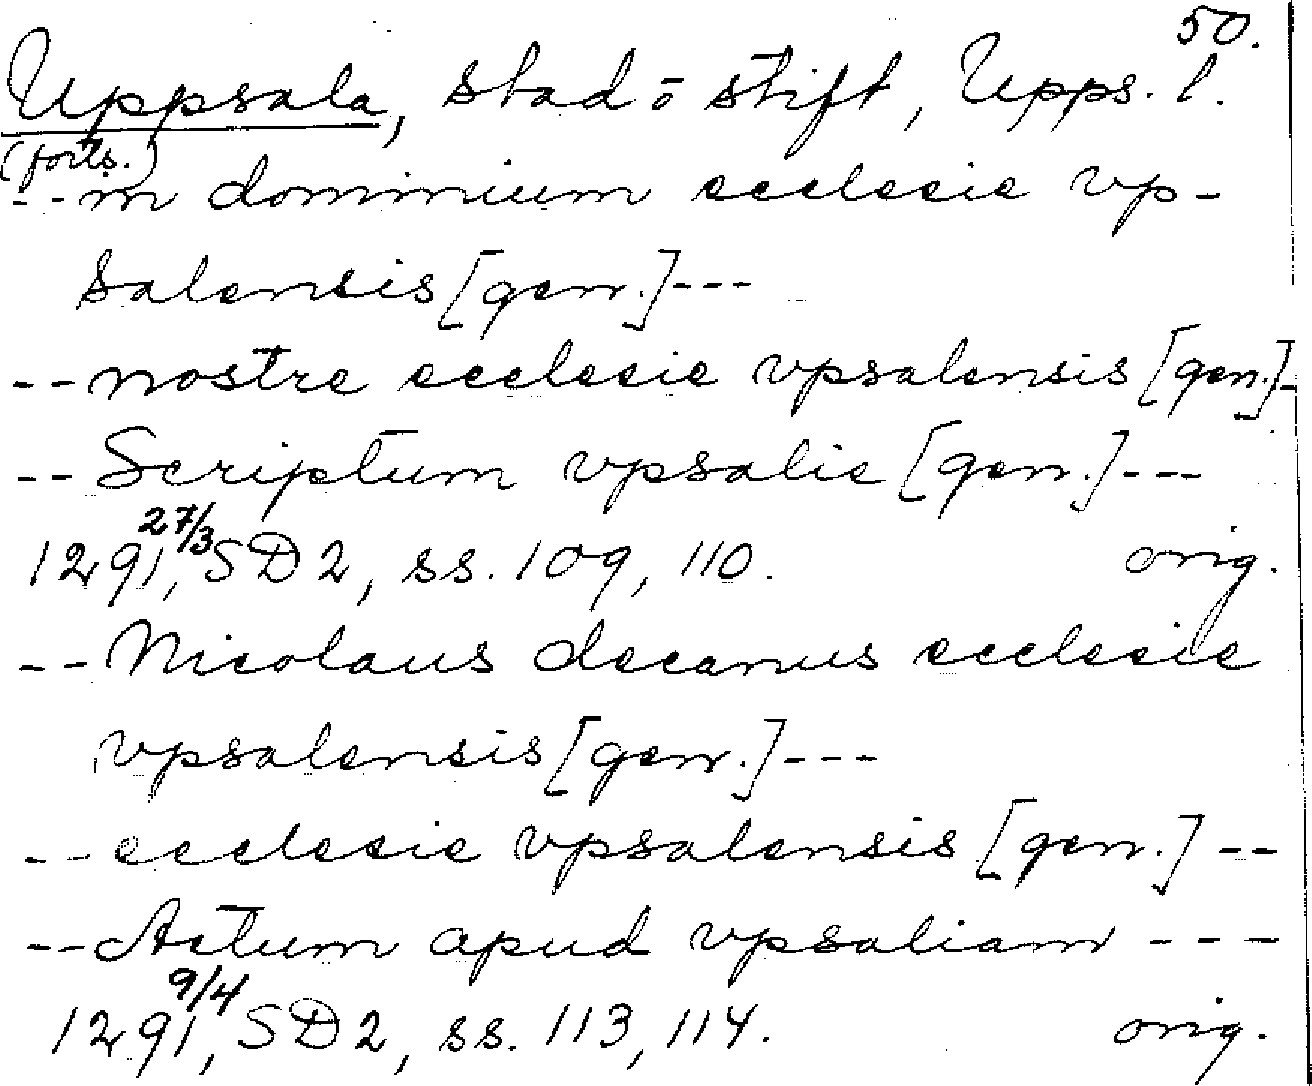 50.
Uppsala, stad o stift, Upps. l.
(forts.)
--in dominium ecclesie vp-
salensis [gen.]---
--nostre ecclesie vpsalensis [gen.]-
--Scriptum vpsalie [gen.]---
1291 27/3, SD2, ss. 109, 110. orig.
--Nicolaus decanus ecclesie
vpsalensis [gen.]---
--ecclesie vpsalensis [gen.]--
--Actum apud vpsaliam ---
1291 9/4, SD2, ss. 113, 114. orig.